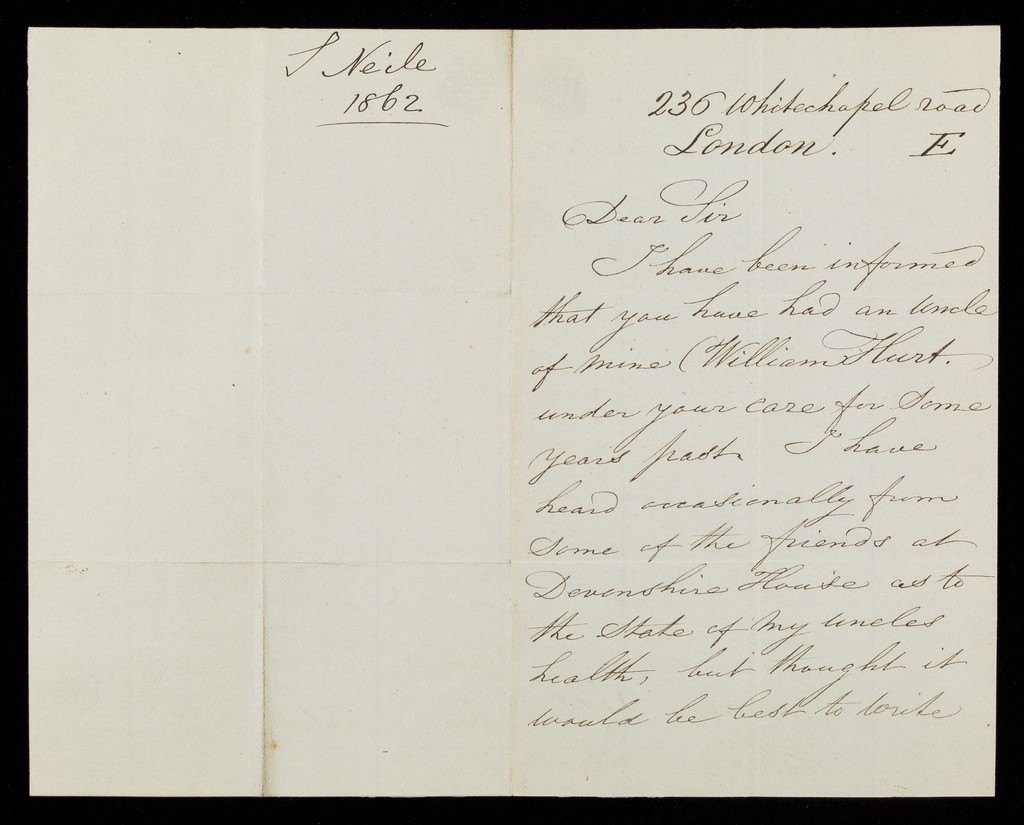 S Neile
1862
236 Whitechapel road
London. E
Dear Sir
I have been informed
that you have had an Uncle
of mine (William Hurt.)
under your care for Some
years past. I have
heard occasionally from
Some of the friends at
Devonshire House as to
the State of My Uncles
health, but thought it
would be best to Write